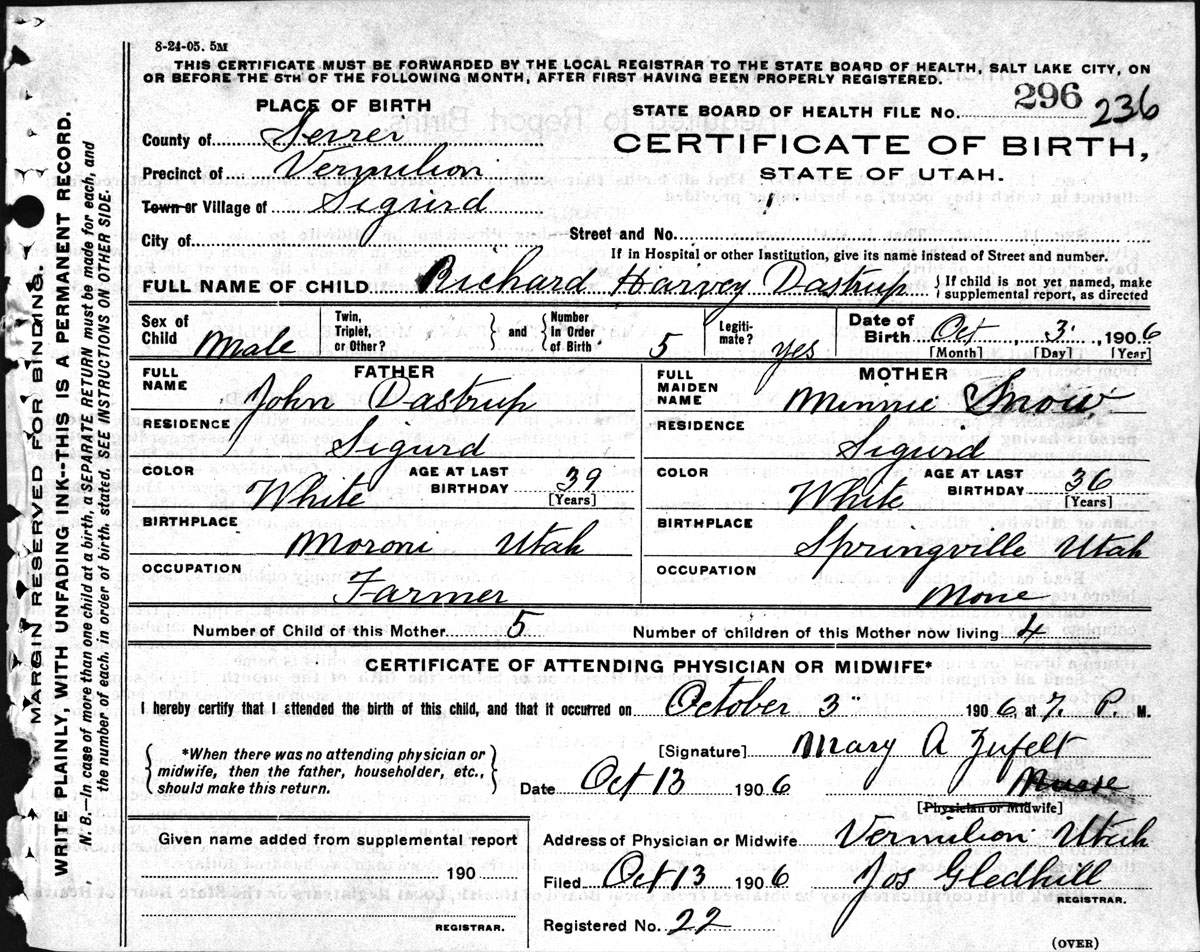 8-24-05. 5M
THIS CERTIFICATE MUST BE FORWARDED BY THE LOCAL REGISTRAR TO THE STATE BOARD OF HEALTH, SALT LAKE CITY, ON
OR BEFORE THE 5TH OF THE FOLLOWING MONTH, AFTER FIRST HAVING BEEN PROPERLY REGISTERED.
PLACE OF BIRTH
STATE BOARD OF HEALTH FILE No. 296 236
County of Sevier
CERTIFICATE OF BIRTH,
Precinct of Vermilion
STATE OF UTAH.
Town or Village of Sigurd
City of
Street and No.
If in Hospital or other Institution, give its name instead of Street and number.
FULL NAME OF CHILD Richard Harvey Dastrup { If child is not yet named, make
supplemental report, as directed
Sex of Child Male
Twin, Triplet, or Other?
and
Number In Order of Birth. 5
Legitimate? yes
Date of Birth Oct, 3, 1906
[Month] [Day] [Year]
FATHER
FULL NAME John Dastrup
RESIDENCE Sigurd
COLOR White AGE AT LAST BIRTHDAY 39
[Years]
BIRTHPLACE Moroni Utah
OCCUPATION Farmer
MOTHER
FULL MAIDEN NAME Minnie Snow
RESIDENCE Sigurd
COLOR White AGE AT LAST BIRTHDAY 36
[Years]
BIRTHPLACE Springville Utah
OCCUPATION None
Number of Child of this Mother 5 Number of children of this Mother now living 4
CERTIFICATE OF ATTENDING PHYSICIAN OR MIDWIFE*
I hereby certify that I attended the birth of this child, and that it occurred on October 3 1906 at 7. P. M.
{ *When there was no attending physician or
midwife, then the father, householder, etc.,
should make this return. }
[Signature] Mary A Zufelt
Date Oct 13 1906 Nurse
[Physician or Midwife]
Given name added from supplemental report
190
REGISTRAR.
Address of Physician or Midwife Vermilion Utah
Filed Oct 13 1906 Jos Gledhill
REGISTRAR.
Registered No. 22
(OVER)
MARGIN RESERVED FOR BINDING.
WRITE PLAINLY, WITH UNFADING INK--THIS IS A PERMANENT RECORD.
N. B.—In case of more than one child at a birth, a SEPARATE RETURN must be made for each, and
the number of each, in order of birth, stated. SEE INSTRUCTIONS ON OTHER SIDE.